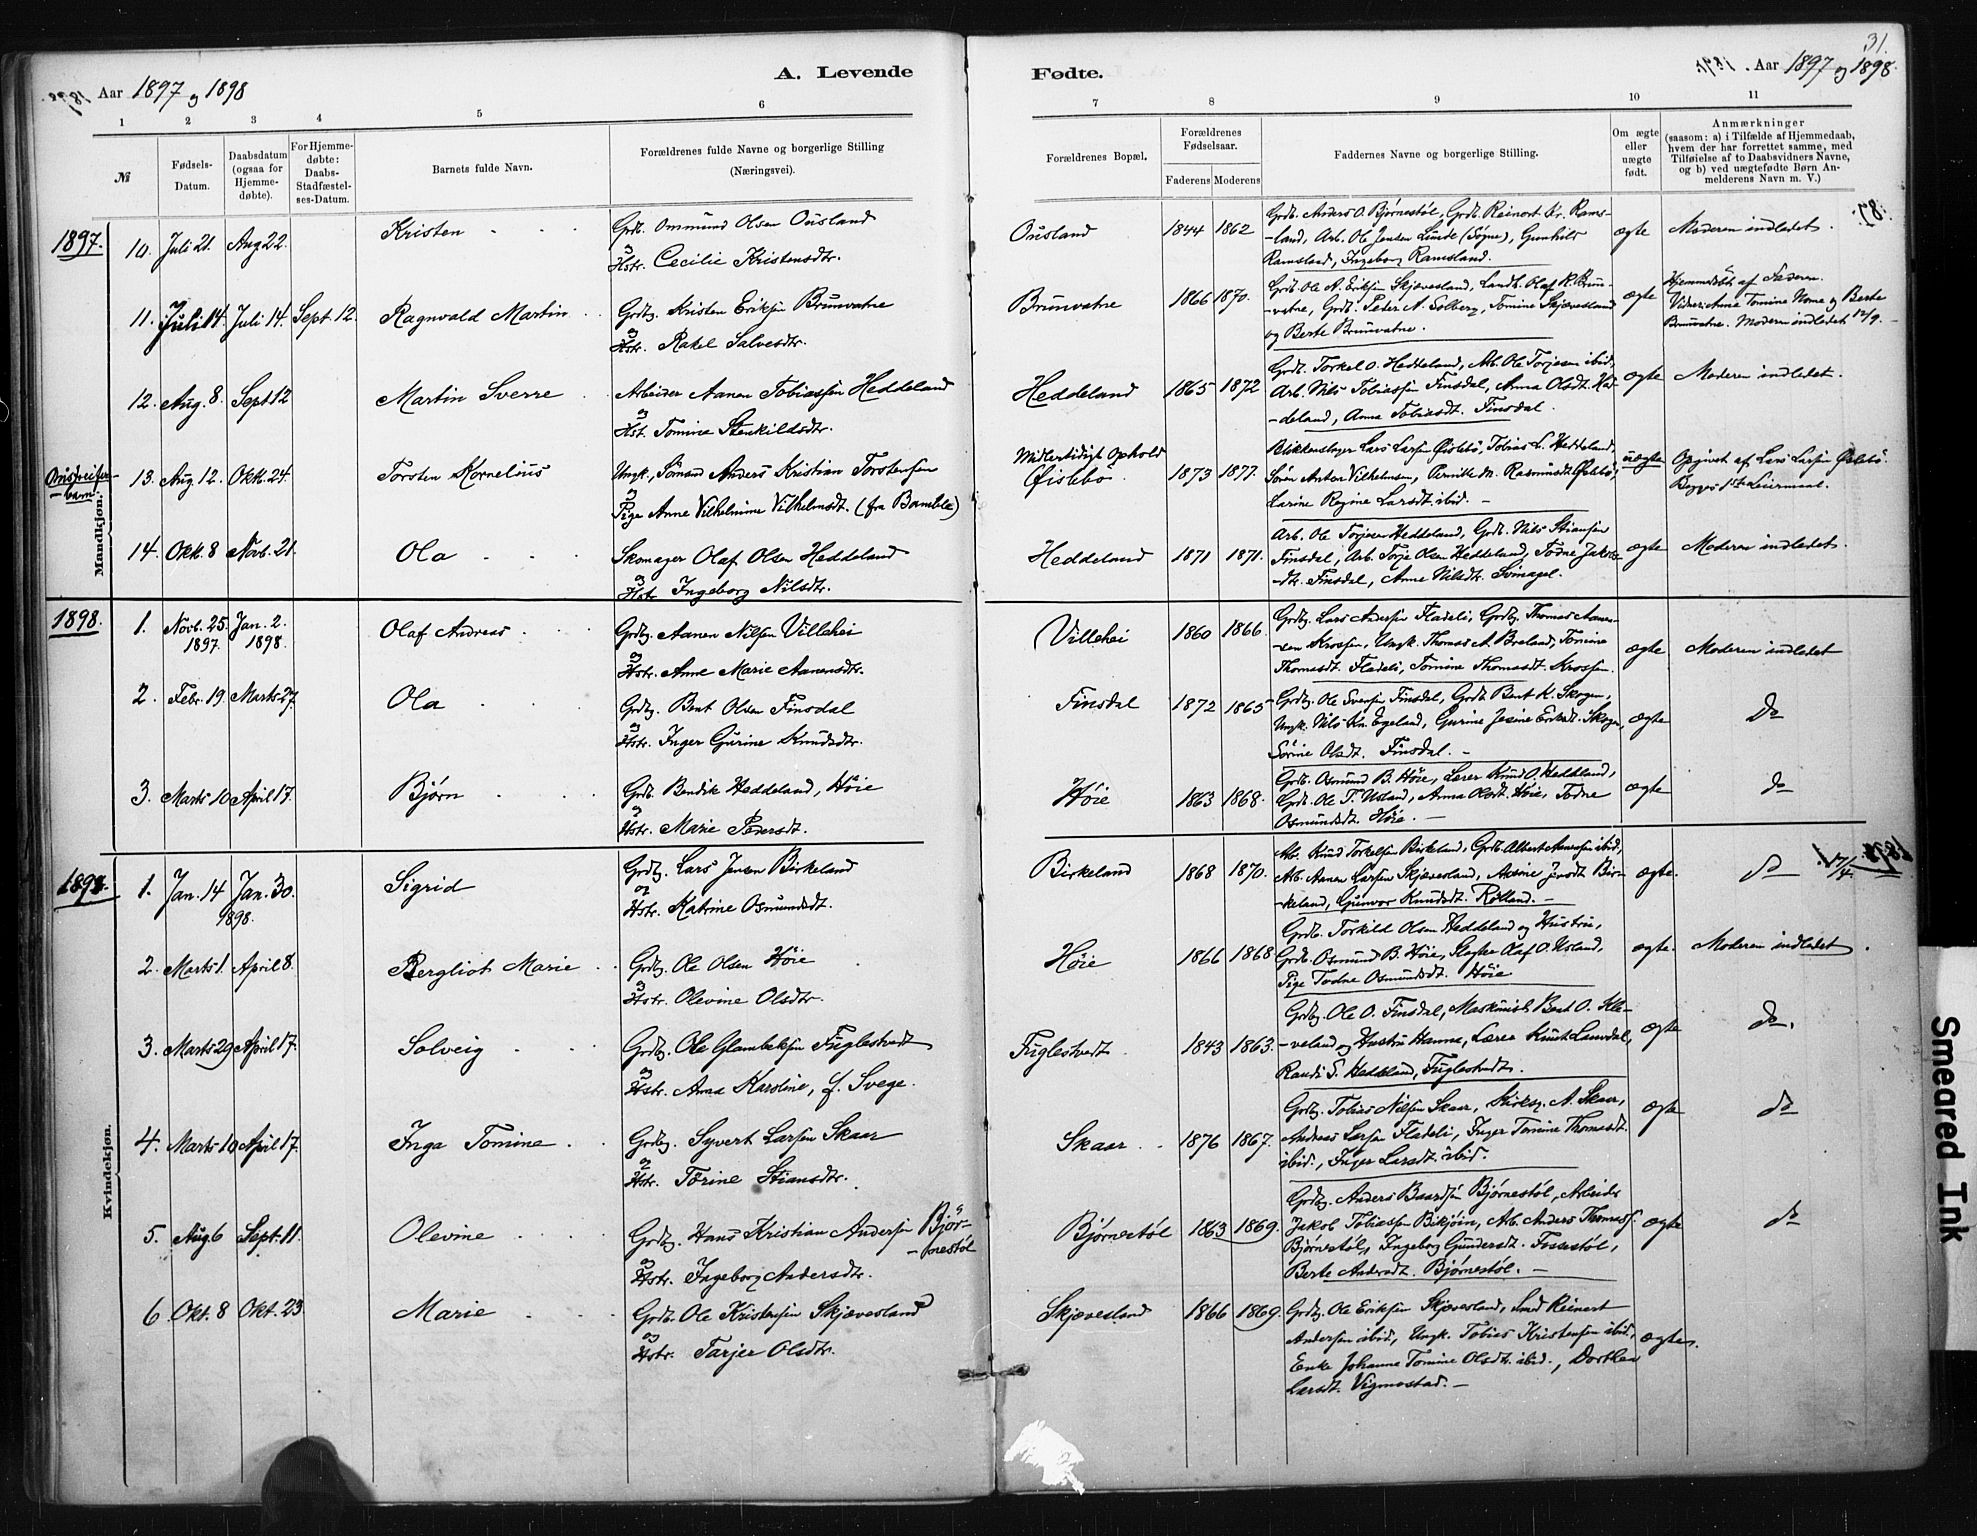 31.
Aar 1897 og 1898
A. Levende
Fødte.
Aar 1897 og 1898.
1 2 3 4 5 6 7 8 9 10 11
№
Fødsels-
Datum.
Daabsdatum
(ogsaa for
Hjemme-
døbte).
For Hjemme-
døbte:
Daabs-
Stadfæstel-
ses-Datum.
Barnets fulde Navn.
Forældrenes fulde Navne og borgerlige Stilling
(Næringsvei).
Forældrenes Bopæl.
Forældrenes
Fødselsaar.
Faderens Moderens
Faddernes Navne og borgerlige Stilling.
Om ægte
eller
uægte
født.
Anmærkninger
(saasom: a) i Tilfælde af Hjemmedaab,
hvem der har forrettet samme, med
Tilføielse af to Daabsvidners Navne,
og b) ved uægtefødte Børn An-
melderens Navn m. V.)
Mandkjøn.
1897.
10. Juli 21. Aug 22. Kristen
Grdb. Ommund Olsen Ousland
og
Hstr. Cecilie Kristensdtr.
Ousland 1844 1862
Grdb. Anders O. Bjørnestøl, Grdb. Reinert Kr. Rams-
-land, Arb. Ole Jensen Lunde (Søgne), Gunhild
Ramsland, Ingeborg Ramsland.
ægte Moderen indledet.
11. Juli 14. Juli 14. Sept 12. Ragnvald Martin
Grdbg. Kristen Eriksen Brunvatne
og
Hstr. Rakel Salvesdtr.
Brunvatne 1866 1870.
Grdb. Ole A. Eriksen Skjævesland, Landb. Olaf K. Brun-
-vatne, Grdb. Peder A. Solberg, Tomine Skjævesland
og Berte Brunvatne.
ægte
Hjemmedøbt af Faderen.
Vidner: Anna Tomine Nome og Berte
Brunvatne. Moderen indledet 12/9.
12. Aug. 8. Sept 12 Martin Sverre
Arbeider Aanen Tobiassen Heddeland
og
Hst. Tomine Stenkildsdtr.
Heddeland 1865 1872
Grdb. Torkel O. Heddeland, Arb. Ole Torjesen ibid,
Arb. Nils Tobiassen Finsdal, Anna Olsdt. Hed-
-deland, Anna Tobiasdt. Finsdal.
ægte Moderen indledet.
13. Aug 12. Okt. 24. Torsten Kornelius
Ungk., Sømand Anders Kristian Torstensen
og
Pige Anne Vilhelmine Vilhelmsdt. (fra Bamble)
Midlertidigt Ophold
Øislebø. 1873 1877.
Blikkenslager Lars Larsen Øislebø, Tobias L. Heddeland,
Søren Anton Vilhelmsen, Pernille M. Rasmusdt. Øislebø,
Larine Regine Larsdt. ibid.
uægte
Opgivet af Lars Larsen Øislebø.
Begges 1ste Leiermaal.
14. Okt. 8 Novb. 21. Ola
Skomager Olaf Olsen Heddeland
og
Hstr. Ingeborg Nilsdtr.
Heddeland 1871 1871.
Arb. Ole Torjesen Heddeland, Grdb. Nils Stiansen
Finsdal, Arb. Torje Olsen Heddeland, Todne Jakobs-
-dtr. Finsdal, Anne Nilsdtr.
ægte Moderen indledet.
1898.
1. Novb. 25. 1897. Jan. 2. 1898. Olaf Andreas
Grdbg. Aanen Nilsen Villehei
og
Hstr. Anne Marie Aanensdtr.
Villehei 1860 1866.
Grdbg. Lars Andersen Fladeli, Grdbg. Thomas Aanen-
-sen Krossen, Ungk. Thomas A. Breland, Tomine
Thomasdt. Fladeli, Tomine Thomasdt. Krossen.
ægte Moderen indledet
2. Febr. 19. Marts 27. Ola
Grdbg. Bent Olsen Finsdal
og
Hstr. Inger Gurine Knudsdtr.
Finsdal 1872 1865
Grdbg. Ole Svensen Finsdal, Grdb. Bent K. Skogen,
Ungk. Nils Kn. Egeland, Gurine Jesine Eriksdt. Skogen,
Sørine Olsdt. Finsdal.
ægte do
3. Marts 10 April 17. Bjørn
Grdb. Bendik Heddeland, Høie
og
Hstr. Marie Pedersdt.
Høie 1863 1868.
Grdb. Osmund B. Høie, Lærer Knud O. Heddeland,
Grdb. Ole T. Usland, Anna Olsdt. Høie, Todne
Osmundsdt. Høie.
ægte do
Kvindekjøn.
1898.
1. Jan. 14 Jan. 30. 1898. Sigrid
Grdbg. Lars Jensen Birkeland
og
Hstr. Katrine Osmundsdt.
Birkeland 1868 1870.
Arb. Knud Torkelsen Birkeland, Grdb. Albert Aanensen ibid,
Arb. Aanen Larsen Skjævesland, Axeine Jensdt. Bir-
-keland, Gunvor Knudsdt. Røiland.
ægte. do 17/4.
2. Marts 1. April 8. Bergliot Marie
Grdbg. Ole Olsen Høie
og
Hstr. Olevine Olsdtr.
Høie 1866 1868
Grdb. Torkild Olsen Heddeland og Hustru,
Grdb. Osmund B. Høie, Olaf O. Usland,
Pige Todne Osmundsdt. Høie
ægte. Moderen indledet.
3. Marts 29 April 17. Solveig
Grdbg. Ole Glambeksen Fuglestvedt
og
Hstr. Anna Karoline, f. Svege.
Fuglestvedt. 1843 1863.
Grdbg. Ole O. Finsdal, Maskinist Bent O. Kle-
-veland og Hustru Hanna, Lærer Knut Laudal,
Randi S. Heddeland, Fuglestvedt.
ægte do.
4. Marts 10 April 17. Inga Tomine
Grdbg. Syvert Larsen Skaar
og
Hstr. Torine Stiansdtr.
Skaar 1876 1867.
Grdbg. Tobias Nilsen Skaar, Kirkesg. A. Skaar,
Andreas Larsen Fladeli, Inger Tomine Thomasdt.
ibid., Inger Larsdt. ibid.
ægte do
5. Aug 6 Sept. 11. Olevine
Grdbg. Hans Kristian Andersen Bjør-
-nestøl
og
Hstr. Ingeborg Andersdtr.
Bjørnestøl 1863 1869.
Grdbg. Anders Baardsen Bjørnestøl, Arbeider
Jakob Tobiassen Bikjøin, Arb. Anders Thomass.
Bjørnestøl, Ingeborg Gundersdt. Fossestøl,
Berte Andersdt. Bjørnestøl.
ægte do
6 Okt. 8 Okt. 23. Marie
Grdb. Ole Kristensen Skjævesland
og
Hstr. Tarjer Olsdtr.
Skjævesland 1866 1869.
Grdbg. Ole Eriksen Skjævesland, Smed Reinert
Andersen ibid, Ungk. Tobias Kristensen ibid.,
Enke Johanne Tomine Olsdt. ibid., Dorthea
Larsdt. Vigmostad.
ægte.
Smeared Ink